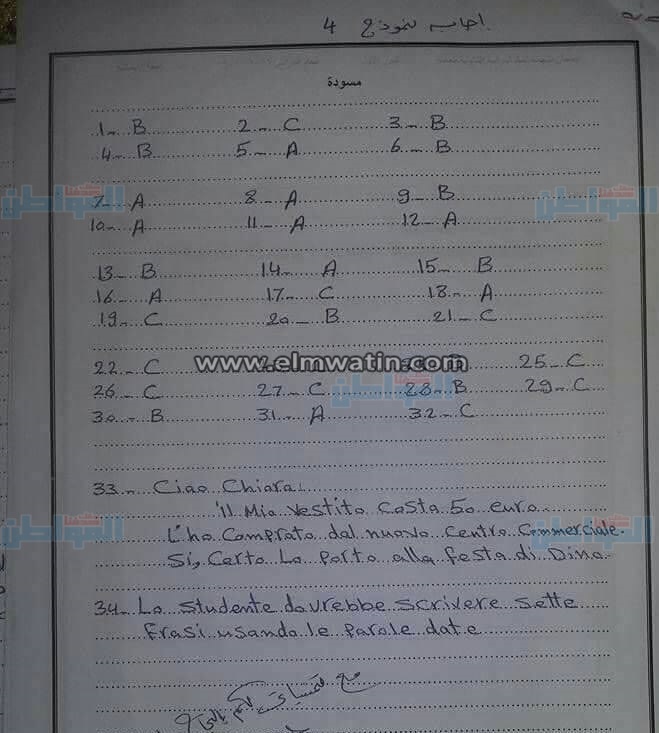 إجابة نموذج 4
مسودة
1- B 2- C 3- B
4- B 5- A 6- B
7- A 8- A 9- B
10- A 11- A 12- A
13- B 14- A 15- B
16- A 17- C 18- A
19- C 20- B 21- C
22- C www.elmwatin.com B 25- C
26- C 27- C 28- B 29- C
30- B 31- A 32- C
المواطن
33- Ciao Chiara:
Il Mio vestito costa 50 euro.
L'ho comprato dal nuovo centro commerciale.
Si, certo Lo porto alla festa di Dino
34- Lo studente dovrebbe scrivere sette
frasi usando le parole date
مع تمنياتى لكم